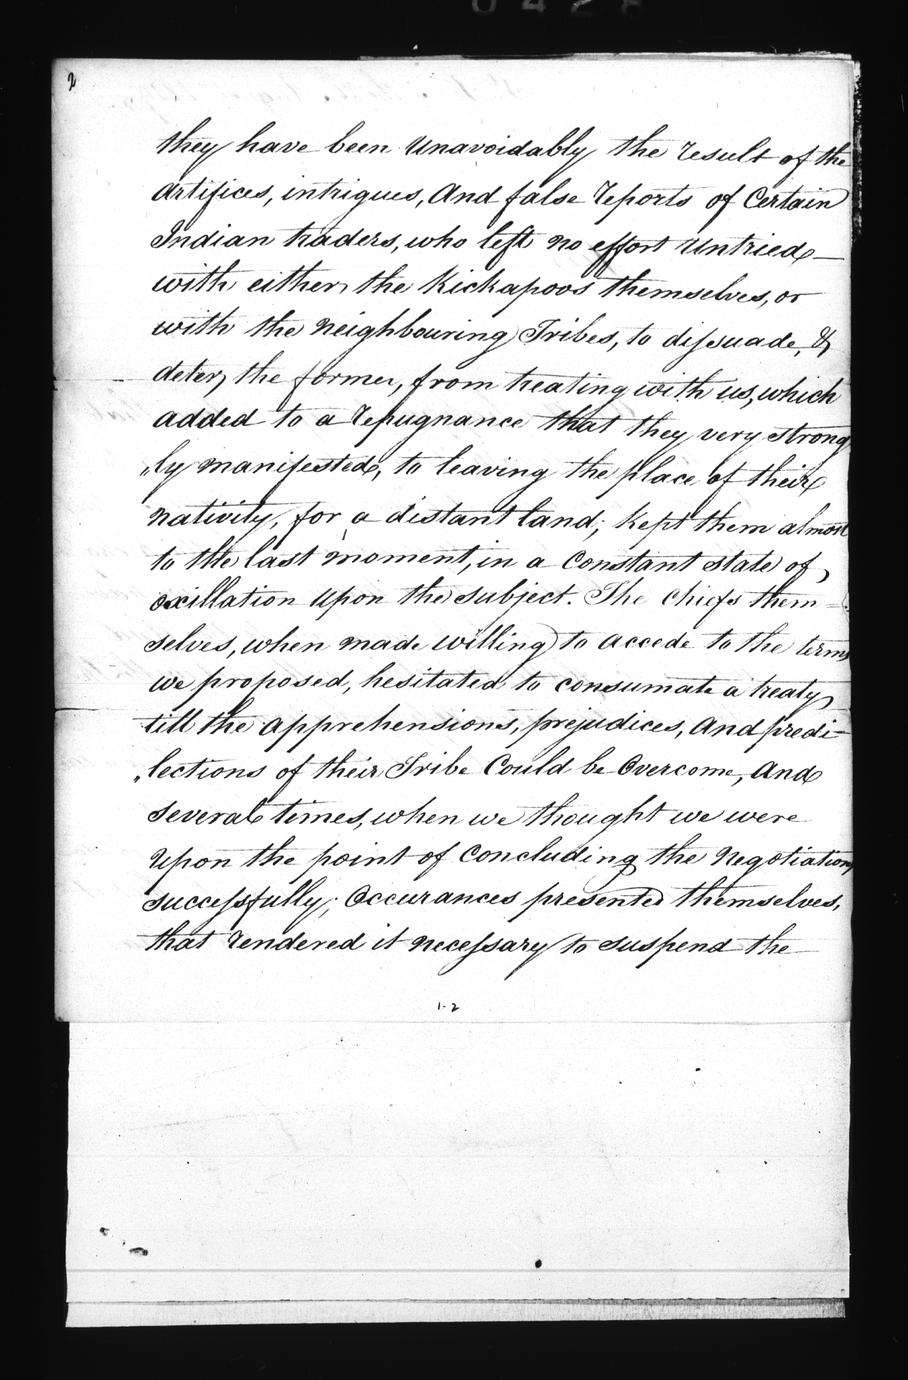 0428
2
they have been unavoidably the result of the
artifices, intrigues, And false reports of Certain
Indian traders, who left no effort untried
with either the Kickapoos themselves, or
with the neighbouring Tribes, to dissuade, &
deter, the former, from treating with us, which
added to a repugnance that they very strong
„ly manifested, to leaving the place of their
nativity, for a distant land, kept them almost
to the last moment, in a Constant state of
oxcillation upon the subject. The chiefs them=
selves, when made willing to accede to the terms
we proposed, hesitated to consumate a treaty
till the apprehensions, prejudices, And predi-
„lections of their Tribe Could be Overcome, And
several times, when we thought we were
upon the point of Concluding the Negotiation
successfully; Occurances presented themselves,
that rendered it necessary to suspend the
1-2